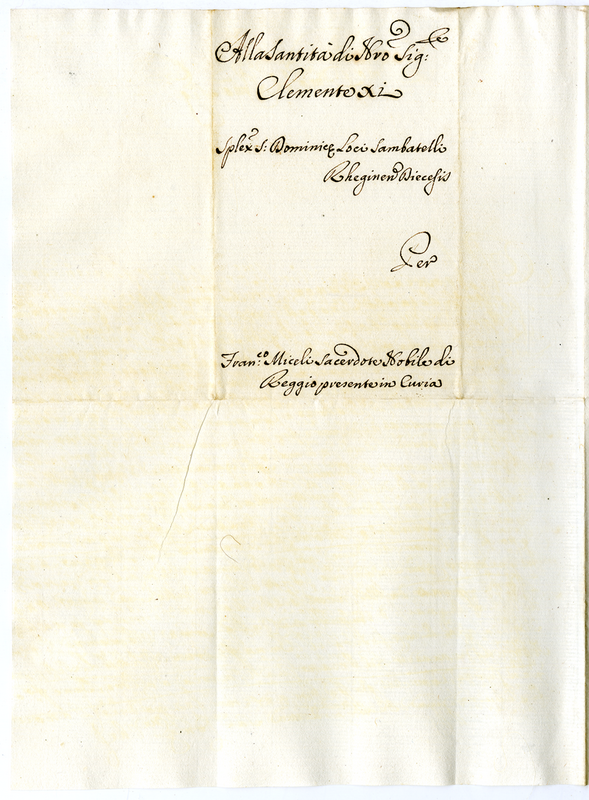 Alla Santità di Nro Sig:re
Clemente XI
Splex S: Dominicę Loci Sambatelli
Rheginen Diecesis
Per
Fran:co Miceli Sacerdote Nobile di
Reggio presente in Curia